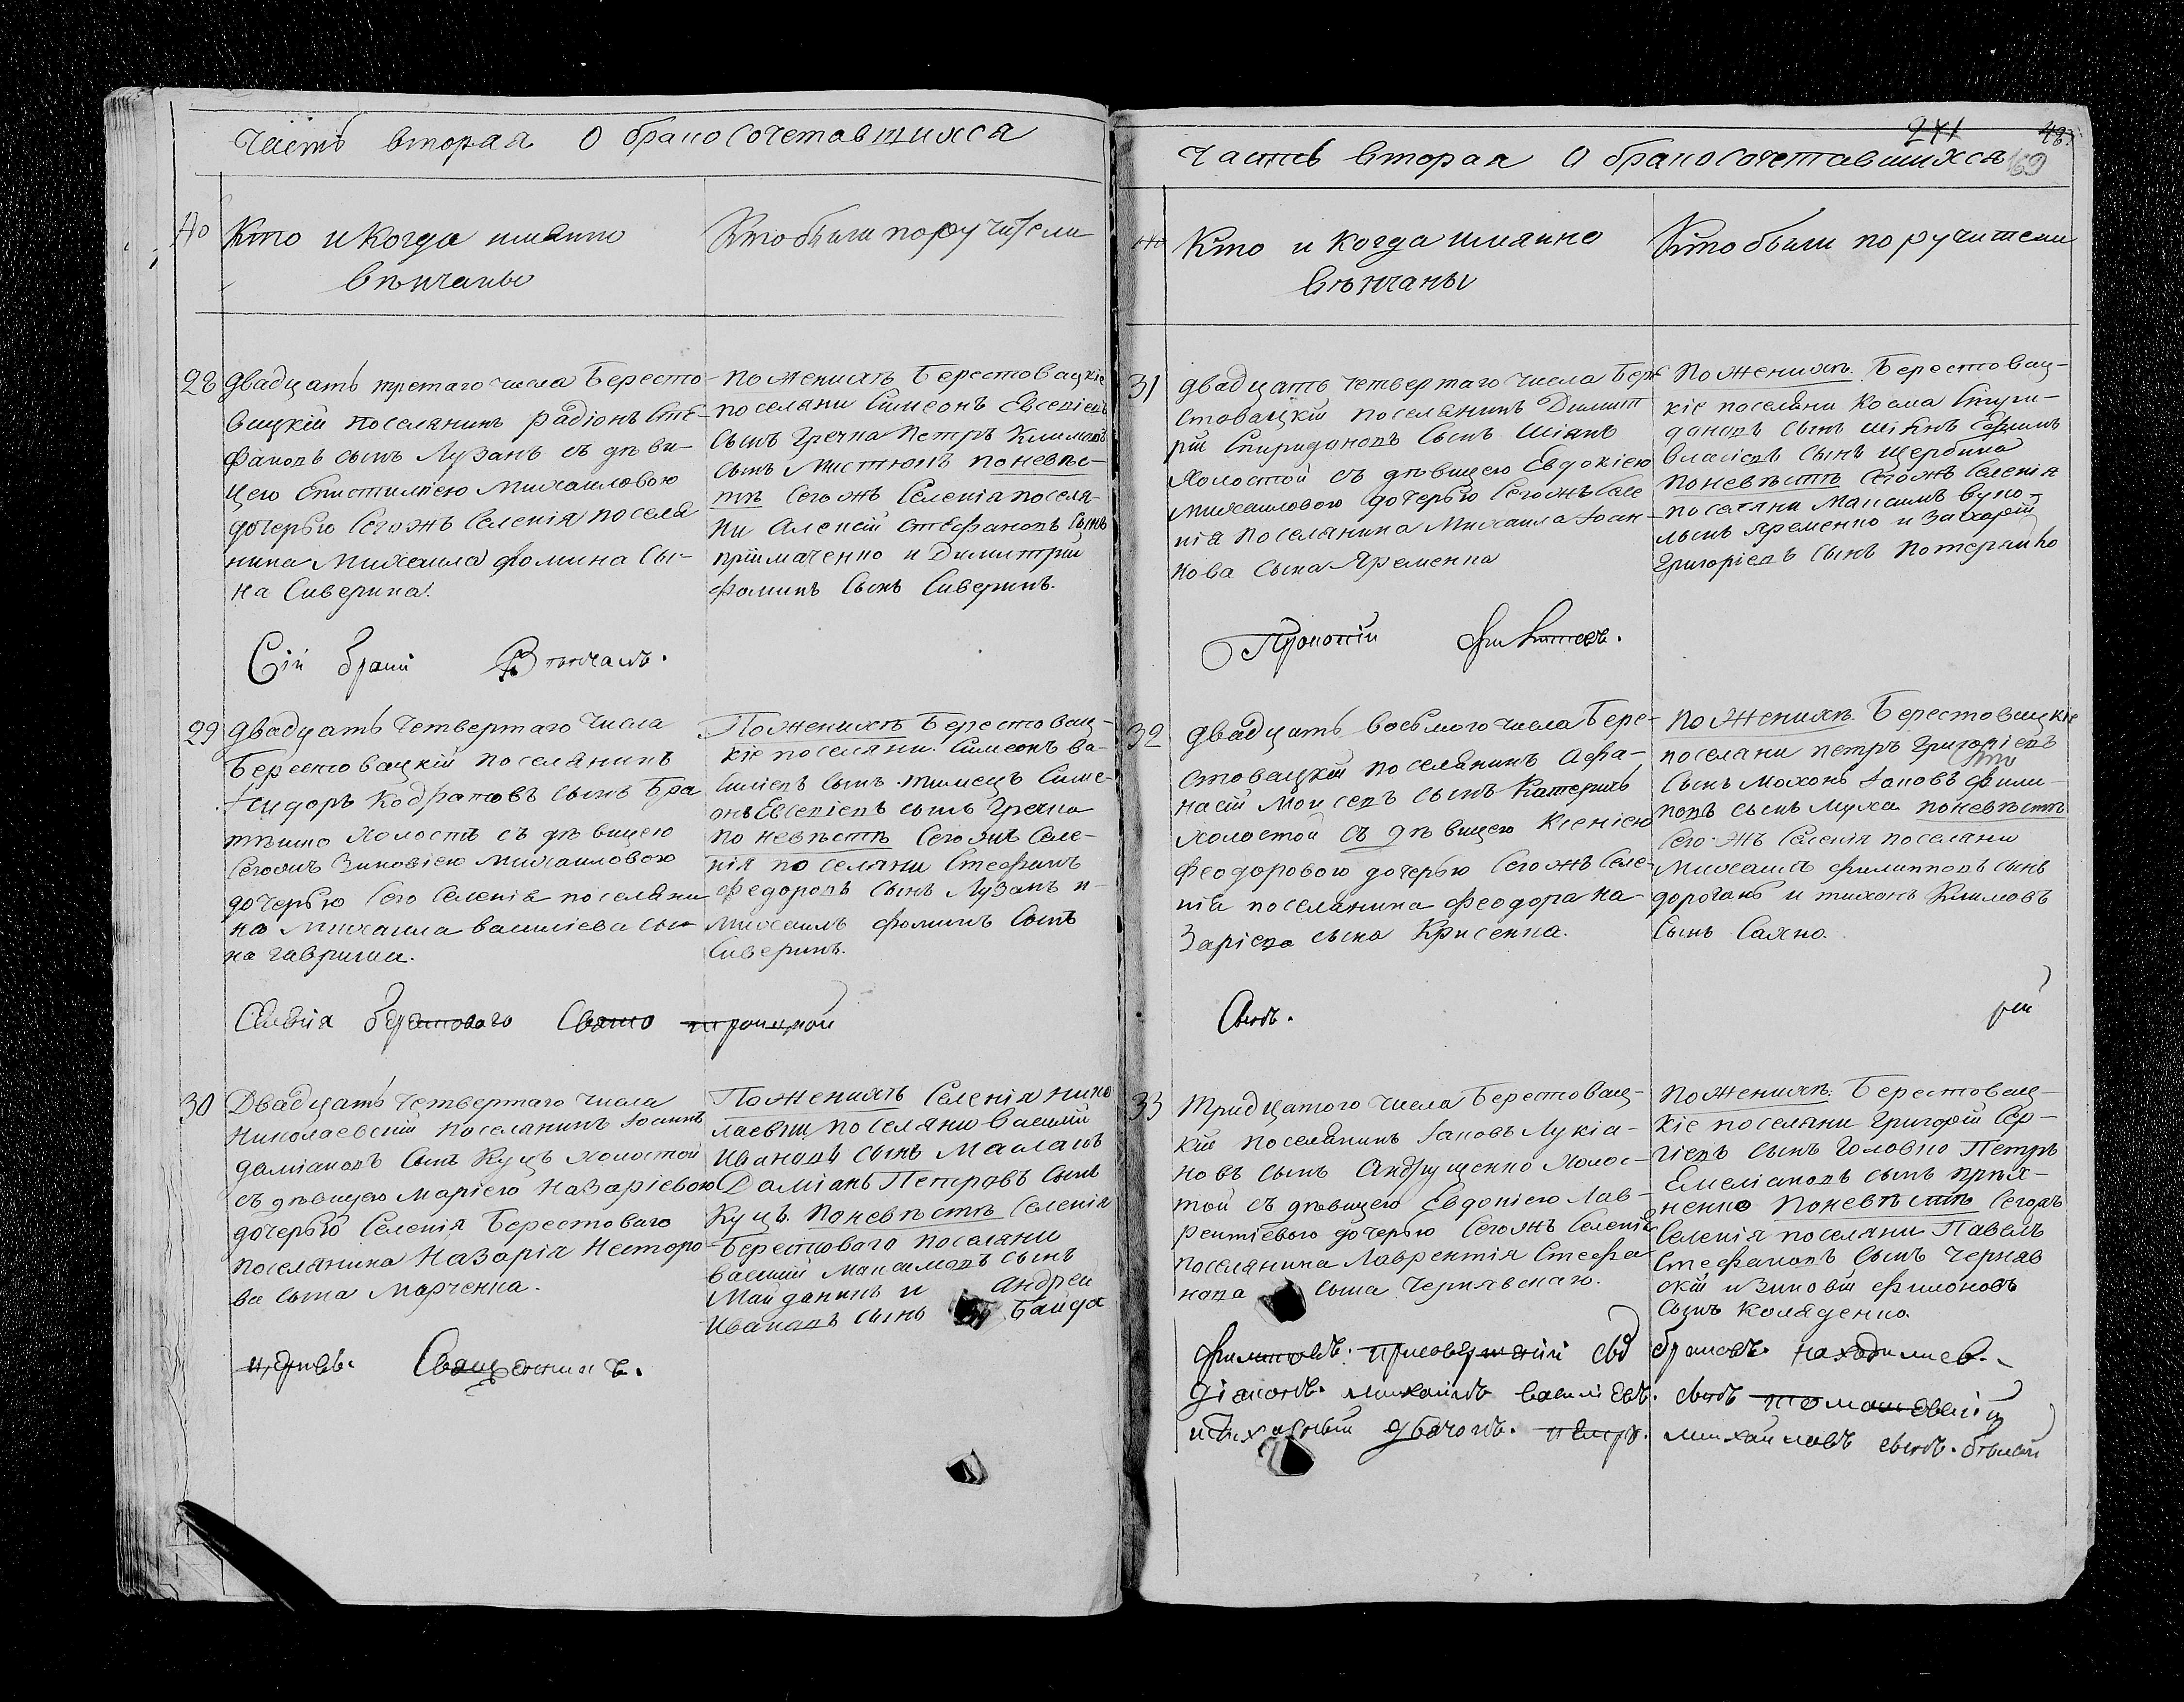 Часть вторая О браносочетавшихся
№
Кто и когда имянно
вѣнчаны
Кто были поручители
28
двадцать третаго числа Бересто-
вацкій поселянинъ Радіонъ Сте-
фановъ сынъ Лузанъ съ дѣви-
цею Епистиміею Михаиловою
дочерью Сегожъ Селенія поселя
нина Михаила Фомина Сы-
на Сиверина.
По женихѣ Берестовацкіе
поселяни Симеонъ Евсевіевъ
Сынъ Гречка Петръ Климовъ
сынъ поневѣс-
тѣ Сегожъ Селенія поселя-
ни Алексій Стефановъ Сынъ
Приймаченко и Димитрій
Фоминъ Сынъ Сиверинъ.
Сій браки Вѣнчалъ.
29
двадцать четвертаго числа
Берестовацкій поселянинъ
Исидоръ Кодратовъ сынъ Бра
холостъ съ дѣвицею
Сегожъ Зиновіею Михаиловою
дочерью Сего Селенія поселяни
на Михаила василіева сы-
на Гавриша.
По женихѣ Берестовац-
кіе поселяни Симеонъ ва-
силіевъ сынъ Симе-
онъ Евсевіевъ сынъ Гречка
По невѣстѣ Сегожъ Селе-
нія поселяни Стефанъ
Федоровъ Сынъ Лузанъ и
Михаилъ Фоминъ Сынъ
Сиверинъ.
Селенія берестоваго Свято троицкой
30
Двадцать четвертаго числа
Николаевскій поселянинъ Іоаннъ
даміановъ Сынъ Куцъ холостой
съ дѣвицею Маріею Назаріевою
дочерью Селенія Берестоваго
поселянина Назарія Несторо-
ва сына Марченка.
По женихѣ Селенія Нико
лаевки поселяни василій
Ивановъ сынъ Маслакъ
Даміанъ Петровъ Сынъ
Куцъ. По невѣстѣ Селенія
Берестоваго поселяни
василій Максимовъ Сынъ
Майданикъ и Андрей
Ивановъ сынъ Байда
церкви. Священникъ.
241
48
169
Часть вторая О браносочетавшихся
№
Кто и когда имянно
вѣнчаны
Кто были поручители
31
двадцать четвертаго числа Бере
стовацкій поселянинъ Димит
рій Спиридоновъ Сынъ Шіянъ
холостой съ дѣвицею Евдокіею
Михаиловою дочерью Сегожъ Селе
нія поселянина Михаила Іоан-
нова Сына Яременка
По женихѣ. Берестовац-
кіе поселяни Косма Спири-
доновъ Сынъ Шіянъ
власіевъ Сынъ Щербина
По невѣстѣ Сегожъ Селенія
поселяни Максимъ
Яременко и Захарій
Григоріевъ Сынъ Потерайко
Прокопій
32
двадцать восьмого числа Бере-
стовацкій поселянинъ Афа-
насій Моисеевъ Сынъ Катеричъ
холостой съ дѣвицею Ксеніею
Феодоровою дочерью Сегожъ Селе-
нія поселянина Феодора На-
заріева сына Крисенка.
По женихѣ. Берестовацкіе
поселяни Петръ Григоріевъ
Сынъ Мохонь Іаковъ Фили-
повъ сынъ Муха поневѣстѣ
Сегожъ Селенія поселяни
Михаилъ Филипповъ Сынъ
дорогань и Тихонъ Климовъ
Сынъ Саяно.
Сынъ.
рій
33
Тридцатого числа Берестовац-
кій поселянинъ Іаковъ Лукіа-
новъ сынъ Андрущенко холос-
той съ дѣвицею Евдокіею Лав-
рентіевою дочерью Сегожъ Селенія
поселянина Лаврентія Стефа
нова сына Чернявскаго.
По женихѣ: Берестовац-
кіе поселяни Григорій Сер-
гіевъ Сынъ Головко Петръ
Емеліановъ сынъ
ненко Поневѣстѣ Сегожъ
Селенія поселяни Павелъ
Стефановъ Сынъ Черняв
скій и Зиновій Филоновъ
Сынъ Коляденко.
Филиповъ. присовершеніи сихъ браковъ. находились.
діаконъ. михаилъ василіевъ. сынъ томашевскій
дьячокъ. петръ. михаиловъ сынъ. білий